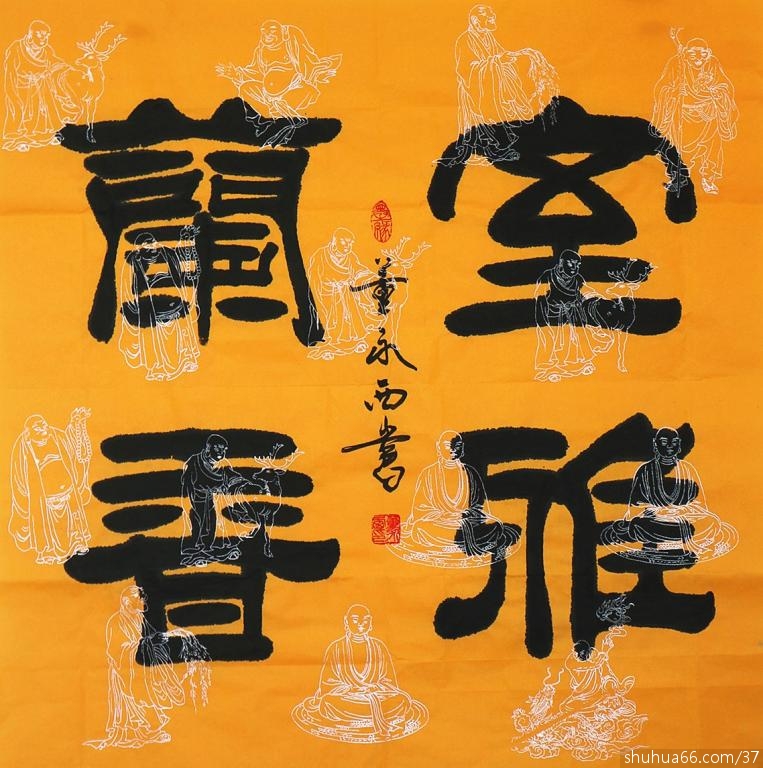 室雅
蘭香
董永西書
shuhua66.com/37